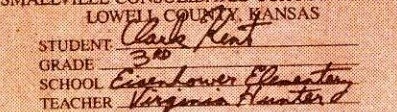 SMALLVILLE CONSOLIDATED
LOWELL COUNTY, KANSAS
STUDENT Clark Kent
GRADE 3RD
SCHOOL Eisenhower Elementary
TEACHER Virginia Hunter